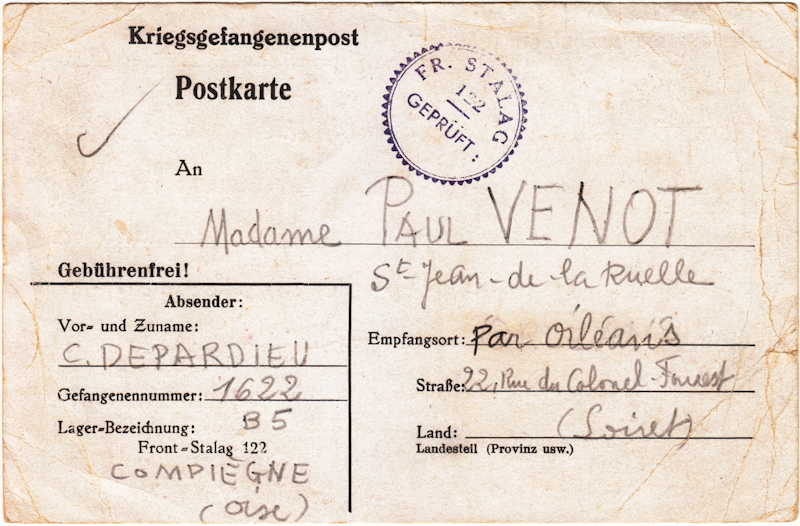 Kriegsgefangenenpost
Postkarte
FR. STALAG
122
GEPRÜFT:
An
Madame PAUL VENOT
St-Jean-de-la Ruelle
Gebührenfrei!
Absender:
Vor- und Zuname:
C. DEPARDIEU
Gefangenennummer: 1622
Lager-Bezeichnung: B5
Front-Stalag 122
COMPIÈGNE
(Oise)
Empfangsort: par Orléans
Straße: 22, Rue du Colonel
Land: (Loiret)
Landesteil (Provinz usw.)